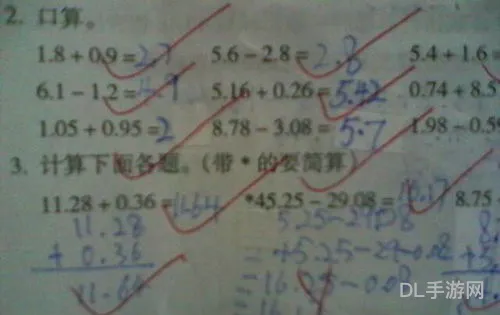 2. 口算。
1.8 + 0.9 = 2.7 5.6 − 2.8 = 2.8 5.4 + 1.6 =
6.1 − 1.2 = 4.9 5.16 + 0.26 = 5.42 0.74 + 8.5
1.05 + 0.95 = 2 8.78 − 3.08 = 5.7 1.98 − 0.59
3. 计算下面各题。(带 * 的要简算)
11.28 + 0.36 = 11.64 *45.25 − 29.08 = 16.17 8.75
11.28 5.25−29.08
+ 0.36 = 45.25−29−0.08
11.64 = 16.25−0.08
DL手游网